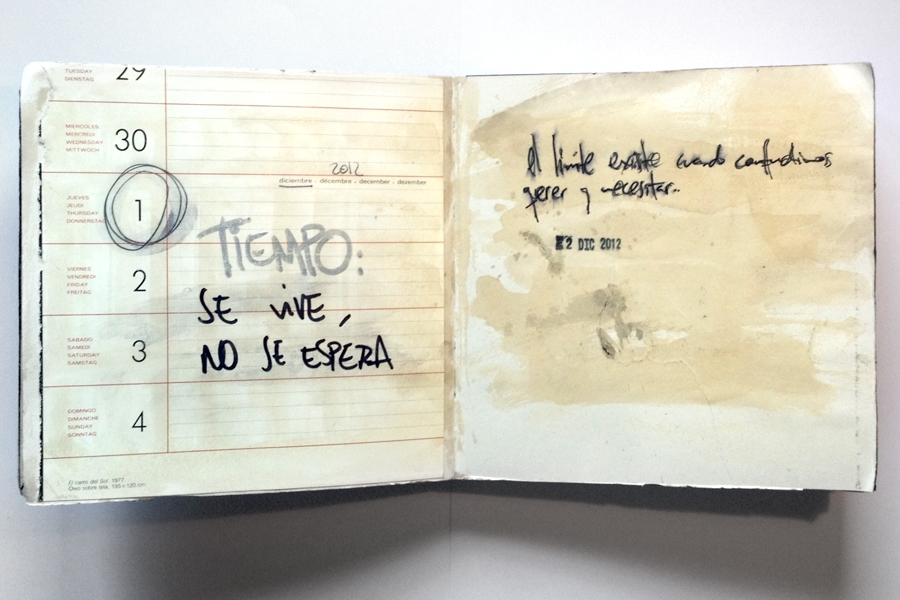 TUESDAY
DIENSTAG
29
MIERCOLES
MERCREDI
WEDNESDAY
MITTWOCH
30
2012
diciembre · décembre · december · dezember
JUEVES
JEUDI
THURSDAY
DONNERSTAG
1
TIEMPO:
VIERNES
VENDREDI
FRIDAY
FREITAG
2
SE VIVE,
NO SE ESPERA
SABADO
SAMEDI
SATURDAY
SAMSTAG
3
DOMINGO
DIMANCHE
SUNDAY
SONNTAG
4
El carro del Sol. 1977.
Oleo sobre tela, 195 x 120 cm.
el límite existe cuando confundimos
querer y necesitar..
2 DIC 2012